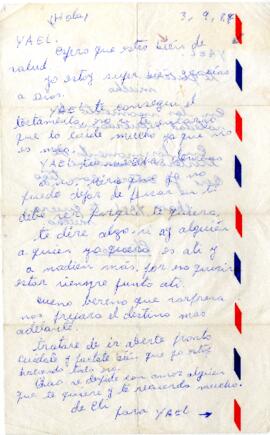 (Hola) 3,9,84
YAEL.
Espero que estes bien de
salud.
yo estoy super bien gracias
a Dios.
YAEL te consegui el
testamento, no
que lo cuide mucho ya que no
es mio.
YAEL
o no, pero que yo no
puedo dejar de pensar en ti
debe ser porque te quiero,
te dire algo, si ay alguien
a quien yo quiero es a ti y
a nadien más, por eso quisiera
estar siempre junto a ti.
bueno veremo que sorpresa
nos prepara el destino mas
adelante.
tratare de ir a verte pronto
cuidate y portate bien que yo estoy
haciendo todo no.
Chao se despide con amor alguien
que te quiere y te recuerda mucho.
de Eli
para YAEL →